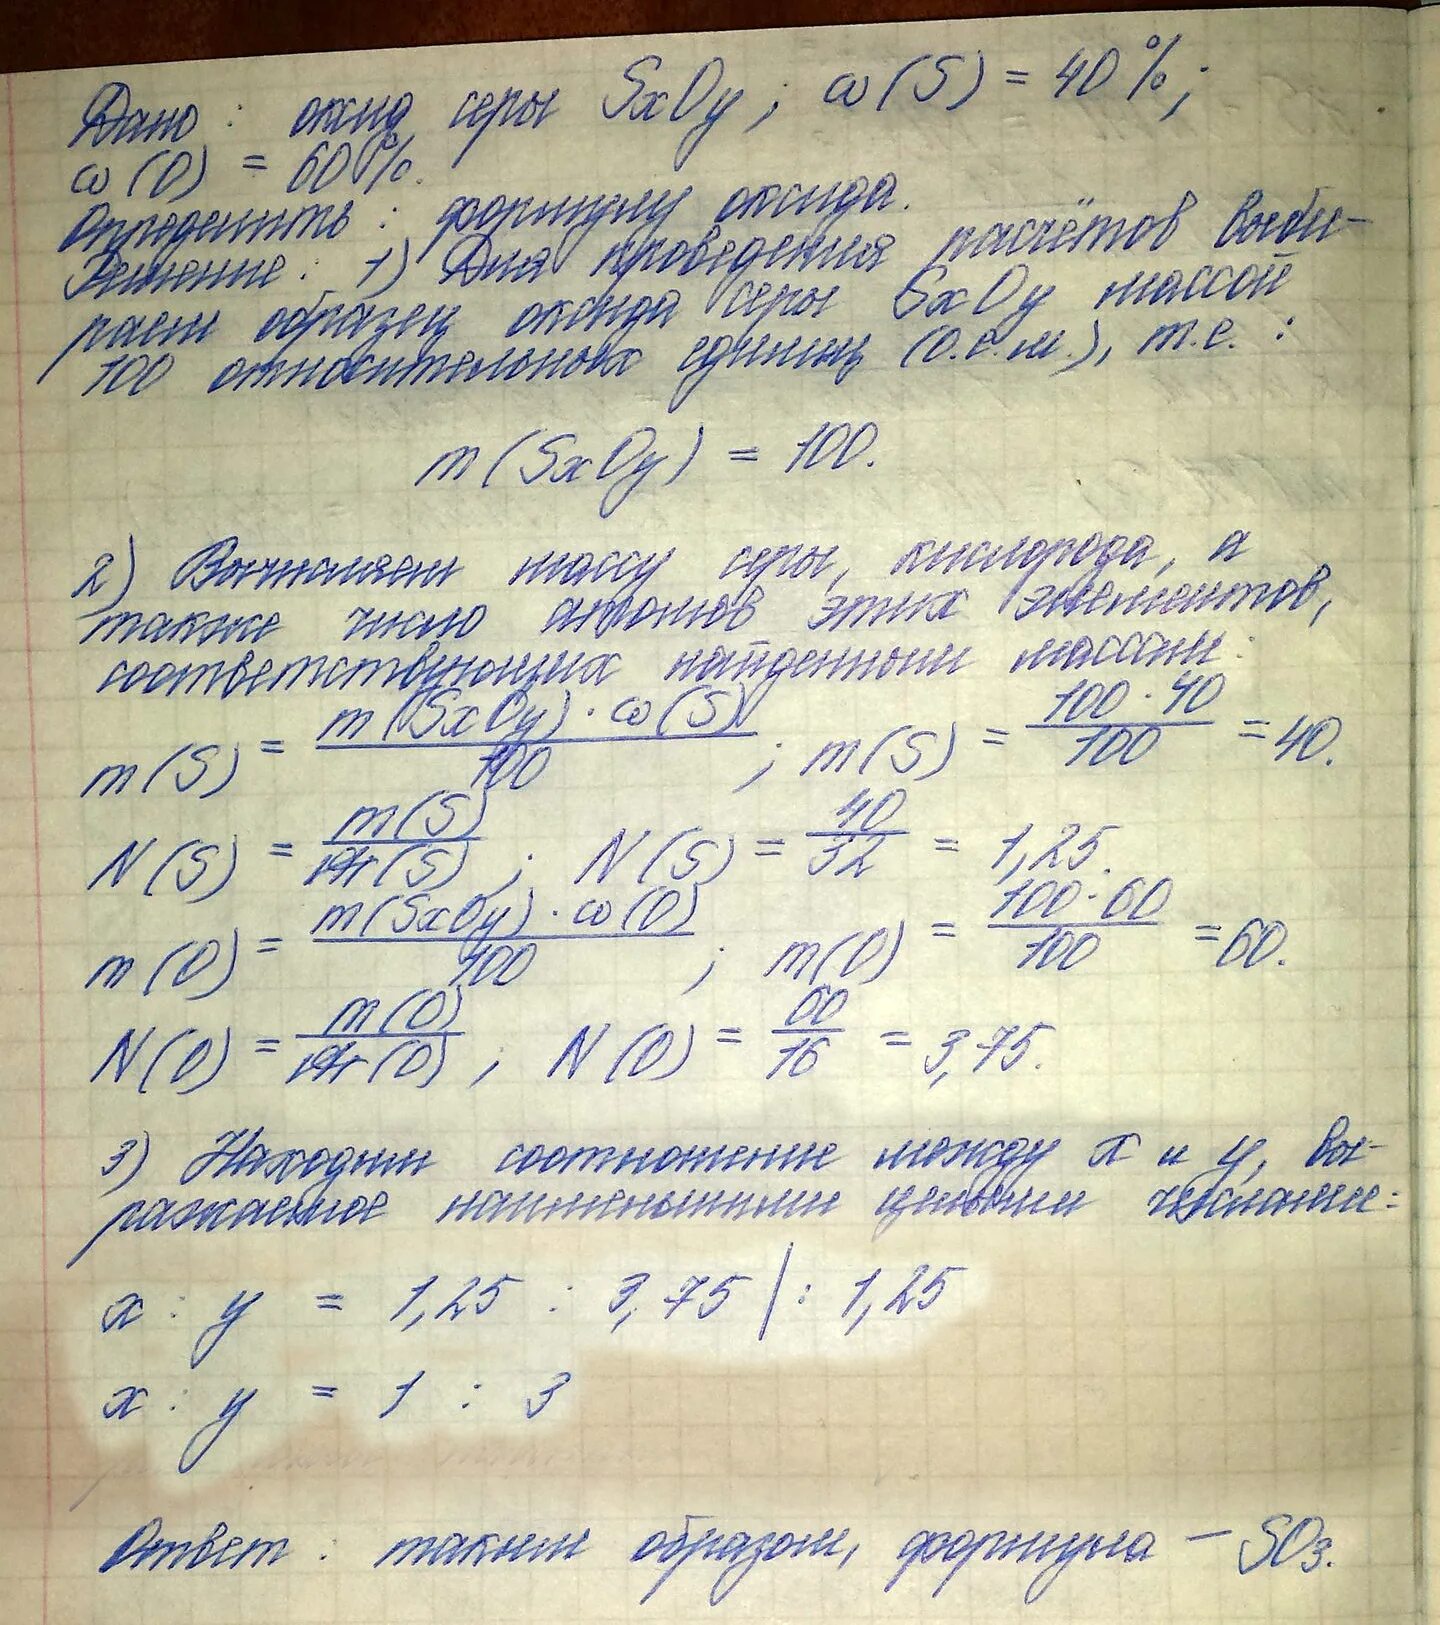 Дано: оксид серы SxOy; ω(S) = 40%;
ω(O) = 60%.
Определить: формулу оксида.
Решение: 1) Для проведения расчётов выби-
раем образец оксида серы SxOy массой
100 относительных единиц (о.е.м.), т.е.:
m(SxOy) = 100.
2) Вычисляем массу серы, кислорода, а
также число атомов этих элементов,
соответствующих найденным массам:
m(S) = m(SxOy)·ω(S)/100; m(S) = 100·40/100 = 40.
N(S) = m(S)/Ar(S); N(S) = 40/32 = 1,25.
m(O) = m(SxOy)·ω(O)/100; m(O) = 100·60/100 = 60.
N(O) = m(O)/Ar(O); N(O) = 60/16 = 3,75.
3) Находим соотношение между x и y, вы-
ражаемое наименьшими целыми числами:
x : y = 1,25 : 3,75 | : 1,25
x : y = 1 : 3
Ответ: таким образом, формула — SO₃.